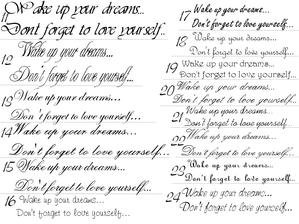 11 Wake up your dreams..
Don't forget to love yourself..
12 Wake up your dreams...
Don't forget to love yourself...
13 Wake up your dreams...
Don't forget to love yourself...
14 Wake up your dreams...
Don't forget to love yourself...
15 Wake up your dreams...
Don't forget to love yourself...
16 Wake up your dreams...
Don't forget to love yourself...
17 Wake up your dreams...
Don't forget to love yourself...
18 Wake up your dreams...
Don't forget to love yourself...
19 Wake up your dreams...
Don't forget to love yourself...
20 Wake up your dreams...
Don't forget to love yourself...
21 Wake up your dreams...
Don't forget to love yourself...
22 Wake up your dreams...
Don't forget to love yourself...
23 Wake up your dreams...
Don't forget to love yourself...
24 Wake up your dreams...
Don't forget to love yourself...